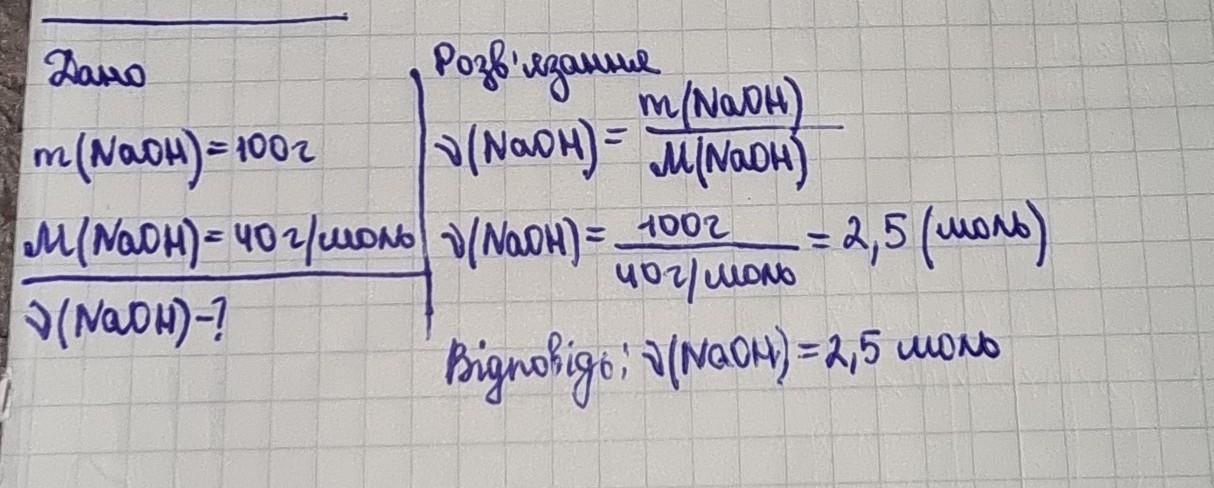 Дано
m(NaOH)=100г
M(NaOH)=40г/моль
ν(NaOH)-?
Розв'язання
ν(NaOH)= m(NaOH)/M(NaOH)
ν(NaOH)= 100г/40г/моль = 2,5 (моль)
Відповідь: ν(NaOH)=2,5 моль